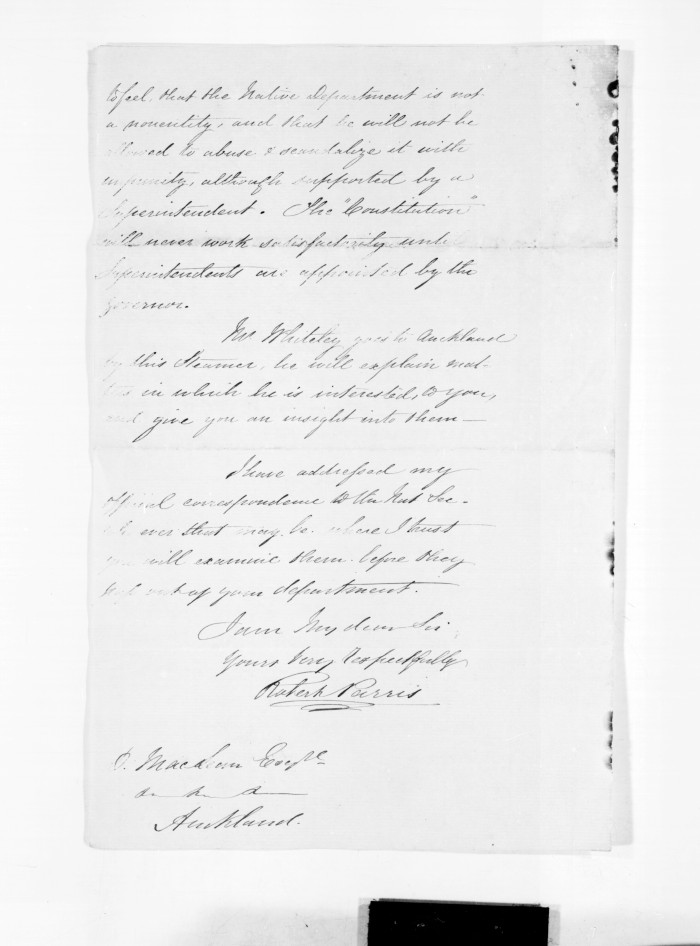 to feel, that the Native Department is not
a nonentity, and that he will not be
allowed to abuse & scandalize it with
impunity, although supported by a
Superintendent. The "Constitution"
will never work satisfactorily until
Superintendents are appointed by the
Governor.
Mr Whiteley goes to Auckland
by this Steamer, he will explain mat-
ters in which he is interested, to you,
and give you an insight into them—
I have addressed my
official correspondence to the Nat Sec-
ever that may be. where I trust
you will examine them before they
out of your department.
I am My dear Sir,
Yours Very Respectfully
Robert Parris
D. MacLean Esqre
Auckland.